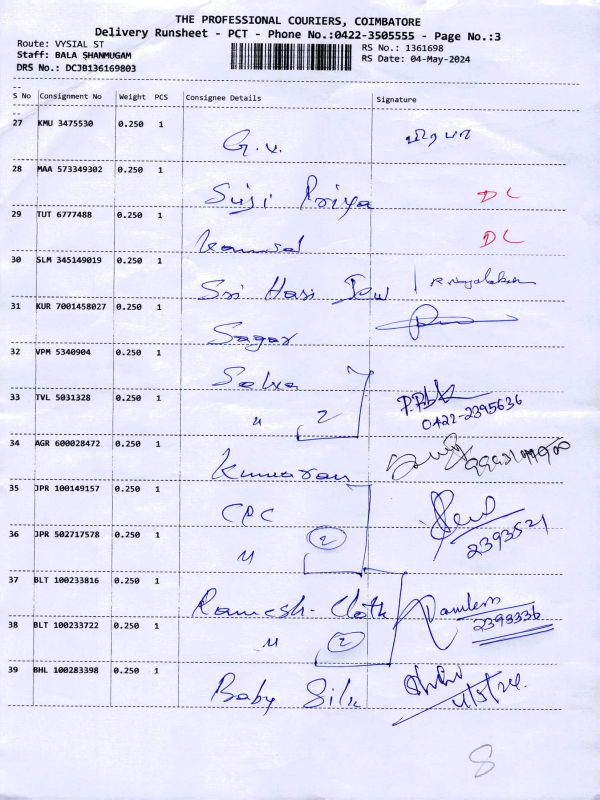 THE PROFESSIONAL COURIERS, COIMBATORE
Delivery Runsheet - PCT - Phone No.:0422-3505555 - Page No.:3
Route: VYSIAL ST
RS No.: 1361698
Staff: BALA SHANMUGAM
RS Date: 04-May-2024
DRS No.: DCJB136169803
S No Consignment No Weight PCS Consignee Details Signature
27 KMU 3475530 0.250 1 G.V.
28 MAA 573349302 0.250 1 Suji Priya DL
29 TUT 6777488 0.250 1 DL
30 SLM 345149019 0.250 1 Sri Hari
31 KUR 7001458027 0.250 1 Sagar
32 VPM 5340904 0.250 1 Selva
33 TVL 5031328 0.250 1 〃 2 0422-2395636
34 AGR 600028472 0.250 1 Kumaran
35 JPR 100149157 0.250 1 CPC
36 JPR 502717578 0.250 1 〃 2 2393521
37 BLT 100233816 0.250 1 Ramesh Cloth
38 BLT 100233722 0.250 1 〃 2 2393336
39 BHL 100283398 0.250 1 Baby Silk 4/5/24
8